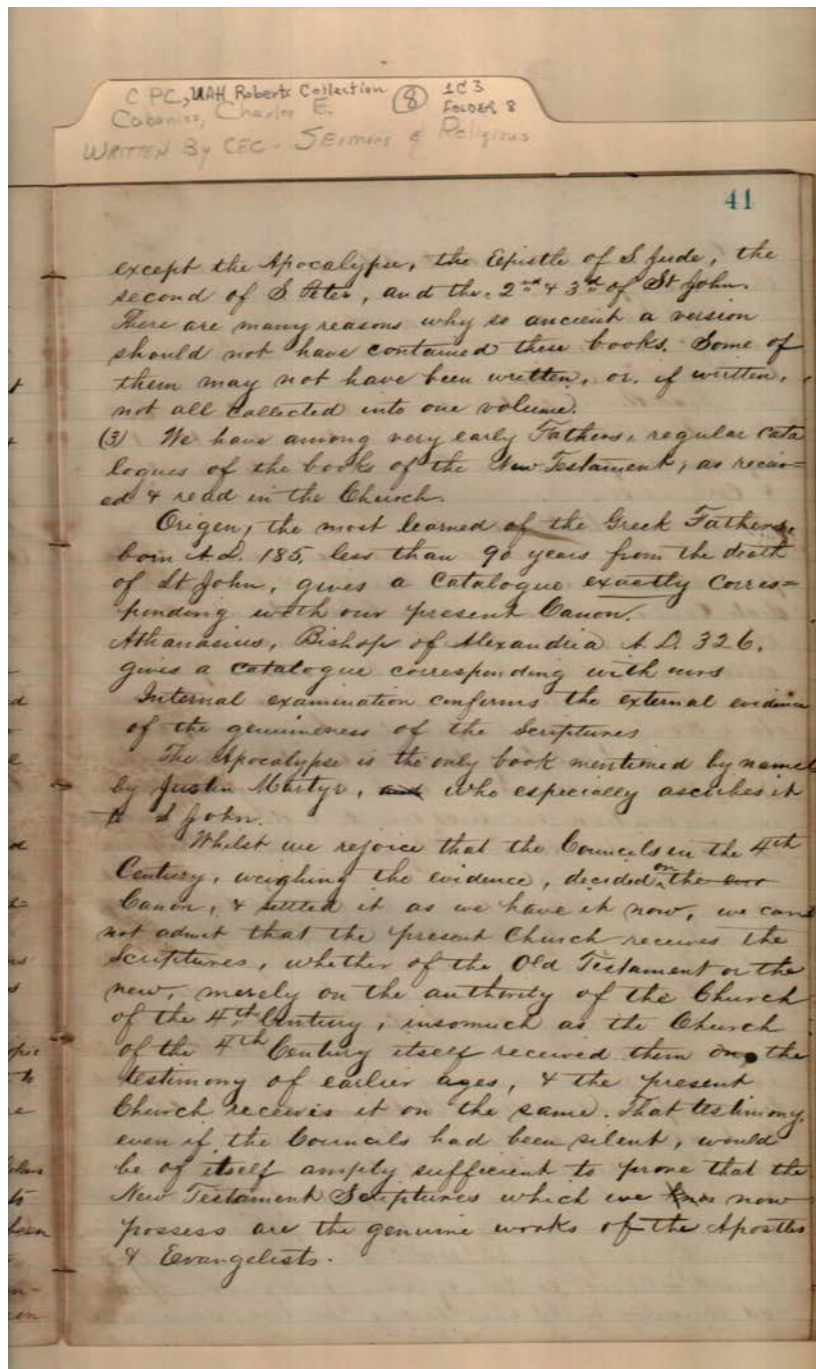 C PC, UAH Roberts Collection 8 1C3
Cabaniss, Charles E. FOLDER 8
WRITTEN By CEC - SErmons & Religious
41
except the Apocalypse, the Epistle of S Jude, the
second of S Peter, and the 2nd & 3d of St John.
There are many reasons why so ancient a version
should not have contained these books. Some of
them may not have been written, or, if written,
not all collected into one volume.
(3) We have among very early Fathers, regular cata
logues of the books of the New Testament, as receiv=
ed & read in the Church.
Origen, the most learned of the Greek Fathers,
born A.D. 185, less than 90 years from the death
of St John, gives a Catalogue exactly corres=
ponding with our present Canon.
Athanasius, Bishop of Alexandria A.D. 326,
gives a catalogue corresponding with ours
Internal examination confirms the external evidence
of the genuineness of the Scriptures
The Apocalypse is the only book mentioned by name
by Justin Martyr, and who especially ascribes it
to S John.
Whilst we rejoice that the Councils in the 4th
Century, weighing the evidence, decided on the
Canon, & settled it as we have it now, we can
not admit that the present Church receives the
Scriptures, whether of the Old Testament or the
new, merely on the authority of the Church
of the 4th Century, insomuch as the Church
of the 4th Century itself received them on the
testimony of earlier ages, & the present
Church receives it on the same. That testimony,
even if the Councils had been silent, would
be of itself amply sufficient to prove that the
New Testament Scriptures which we know now
possess are the genuine works of the Apostles
& Evangelists.